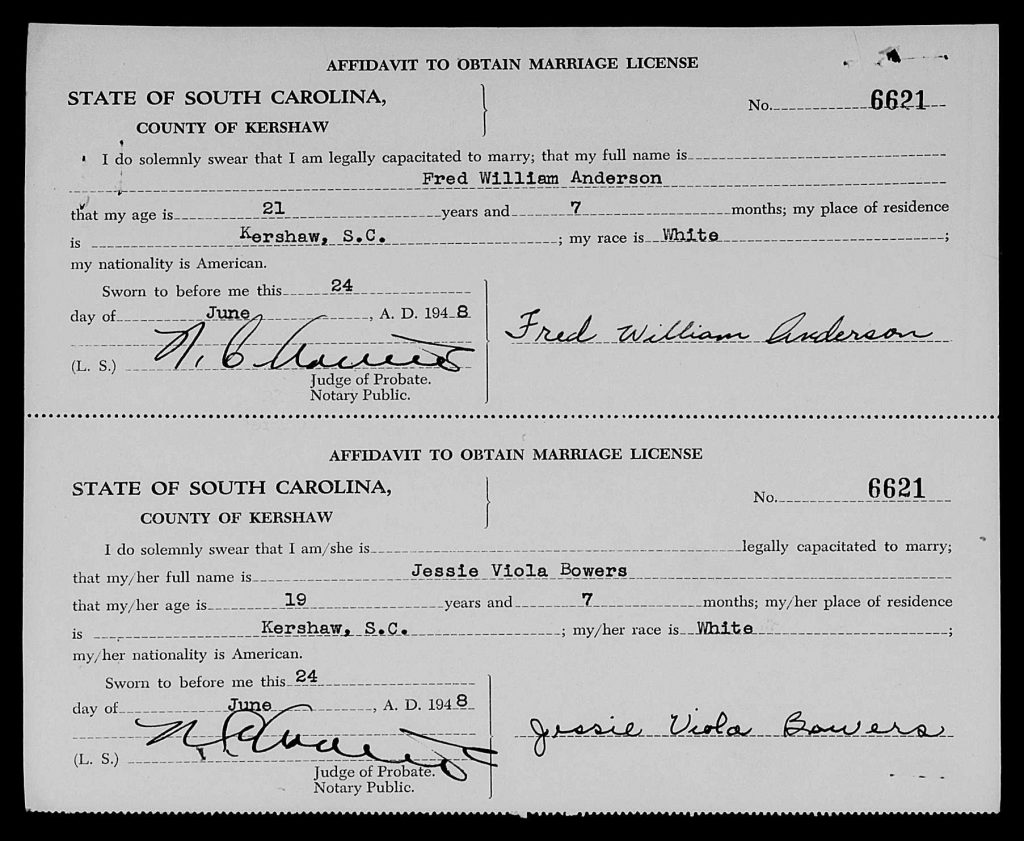 AFFIDAVIT TO OBTAIN MARRIAGE LICENSE
STATE OF SOUTH CAROLINA,
COUNTY OF KERSHAW
No. 6621
I do solemnly swear that I am legally capacitated to marry; that my full name is
Fred William Anderson
that my age is 21 years and 7 months; my place of residence
is Kershaw, S.C. ; my race is White ;
my nationality is American.
Sworn to before me this 24
day of June , A. D. 1948
Fred William Anderson
(L. S.) N. C.
Judge of Probate.
Notary Public.
AFFIDAVIT TO OBTAIN MARRIAGE LICENSE
STATE OF SOUTH CAROLINA,
COUNTY OF KERSHAW
No. 6621
I do solemnly swear that I am/she is legally capacitated to marry;
that my/her full name is Jessie Viola Bowers
that my/her age is 19 years and 7 months; my/her place of residence
is Kershaw, S.C. ; my/her race is White ;
my/her nationality is American.
Sworn to before me this 24
day of June , A. D. 1948
Jessie Viola Bowers
(L. S.) N. C.
Judge of Probate.
Notary Public.